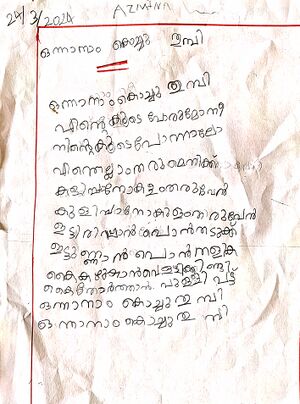 29/3/2024
AZMINA
ഒന്നാനാം കൊച്ചു തുമ്പി
ഒന്നാനാം കൊച്ചു തുമ്പി
എന്റെകൂടെ പോരുമോ നീ
നിന്റെകൂടെപോന്നാലോ
എന്തെല്ലാംതരുമെനിക്ക്
കളിപ്പാനോകളംതരുവേൻ
കുളിപ്പാനോകുളംതരുവേൻ
ഇട്ടിരിപ്പാൻ പൊൻതടുക്ക്
ഇട്ടുണ്ണാൻ പൊൻതളിക
കൈകഴുകാൻവെള്ളിക്കിണ്ടി
കൈതോർത്താൻ. പുള്ളിപട്ട്
ഒന്നാനാം കൊച്ചുതുമ്പി
ഒന്നാനാം കൊച്ചുതുമ്പി